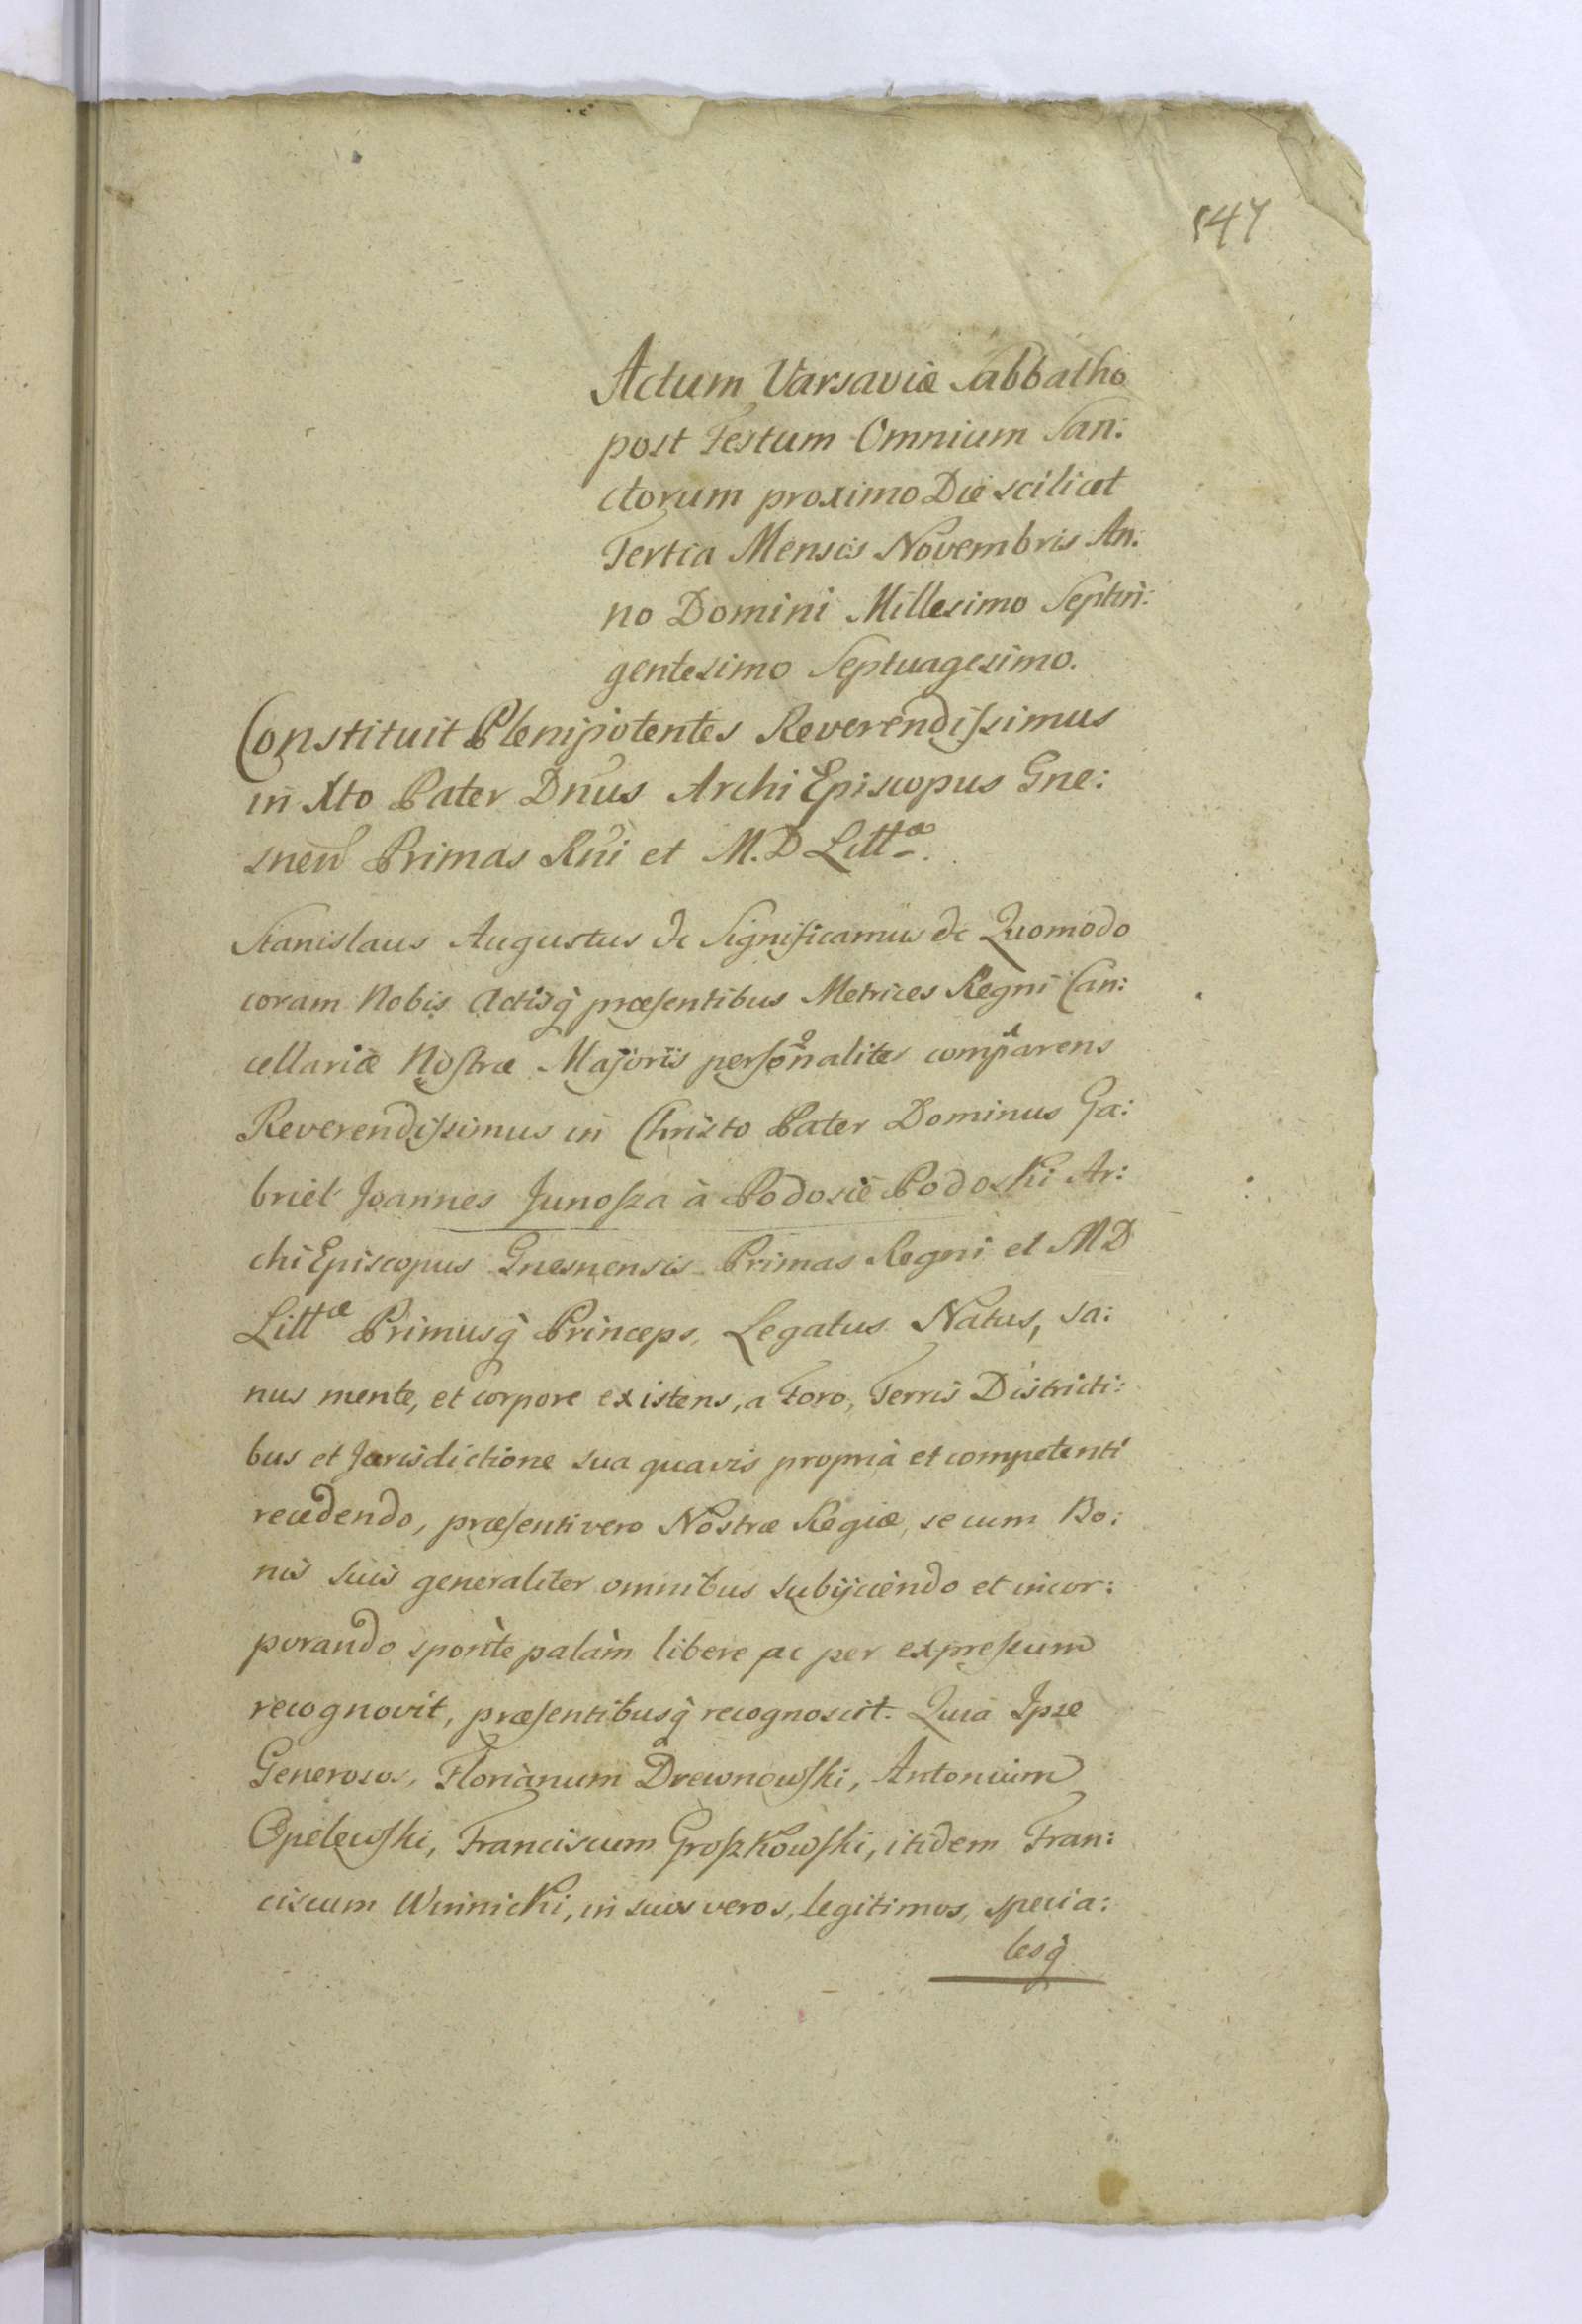 147
Actum Varsaviæ Sabbatho
post Festum Omnium San:
ctorum proximo Die scilicet
Tertia Mensis Novembris An:
no Domini Millesimo Septin:
gentesimo Septuagesimo.
Constituit Plenipotentes Reverendissimus
in Xto Pater Dnus Archi Episcopus Gne:
snen Primas Rni et M.D Littæ.
Stanislaus Augustus &c Significamus &c Quomodo
coram Nobis Actisq præsentibus Metrices Regni Can:
cellariæ Nostræ Majoris personaliter comparens
Reverendissimus in Christo Pater Dominus Ga:
briel Joannes Junosza à Podosie Podoski Ar:
chi Episcopus Gnesnensis Primas Regni et MD
Littæ Primusq Princeps, Legatus Natus, sa:
nus mente, et corpore existens, a Foro, Terris Districti:
bus et Jurisdictione sua quavis propria et competenti
recedendo, præsenti vero Nostræ Regiæ, se cum Bo:
nis suis generaliter omnibus subijciendo et incor:
porando sponte palàm libere ac per expressum
recognovit, præsentibusq recognoscit. Quia Ipse
Generosos, Florianum Drewnowski, Antonium
Opelewski, Franciscum Groszkowski, itidem Fran:
ciscum Winnicki, in suos veros, legitimos, specia:
lesq